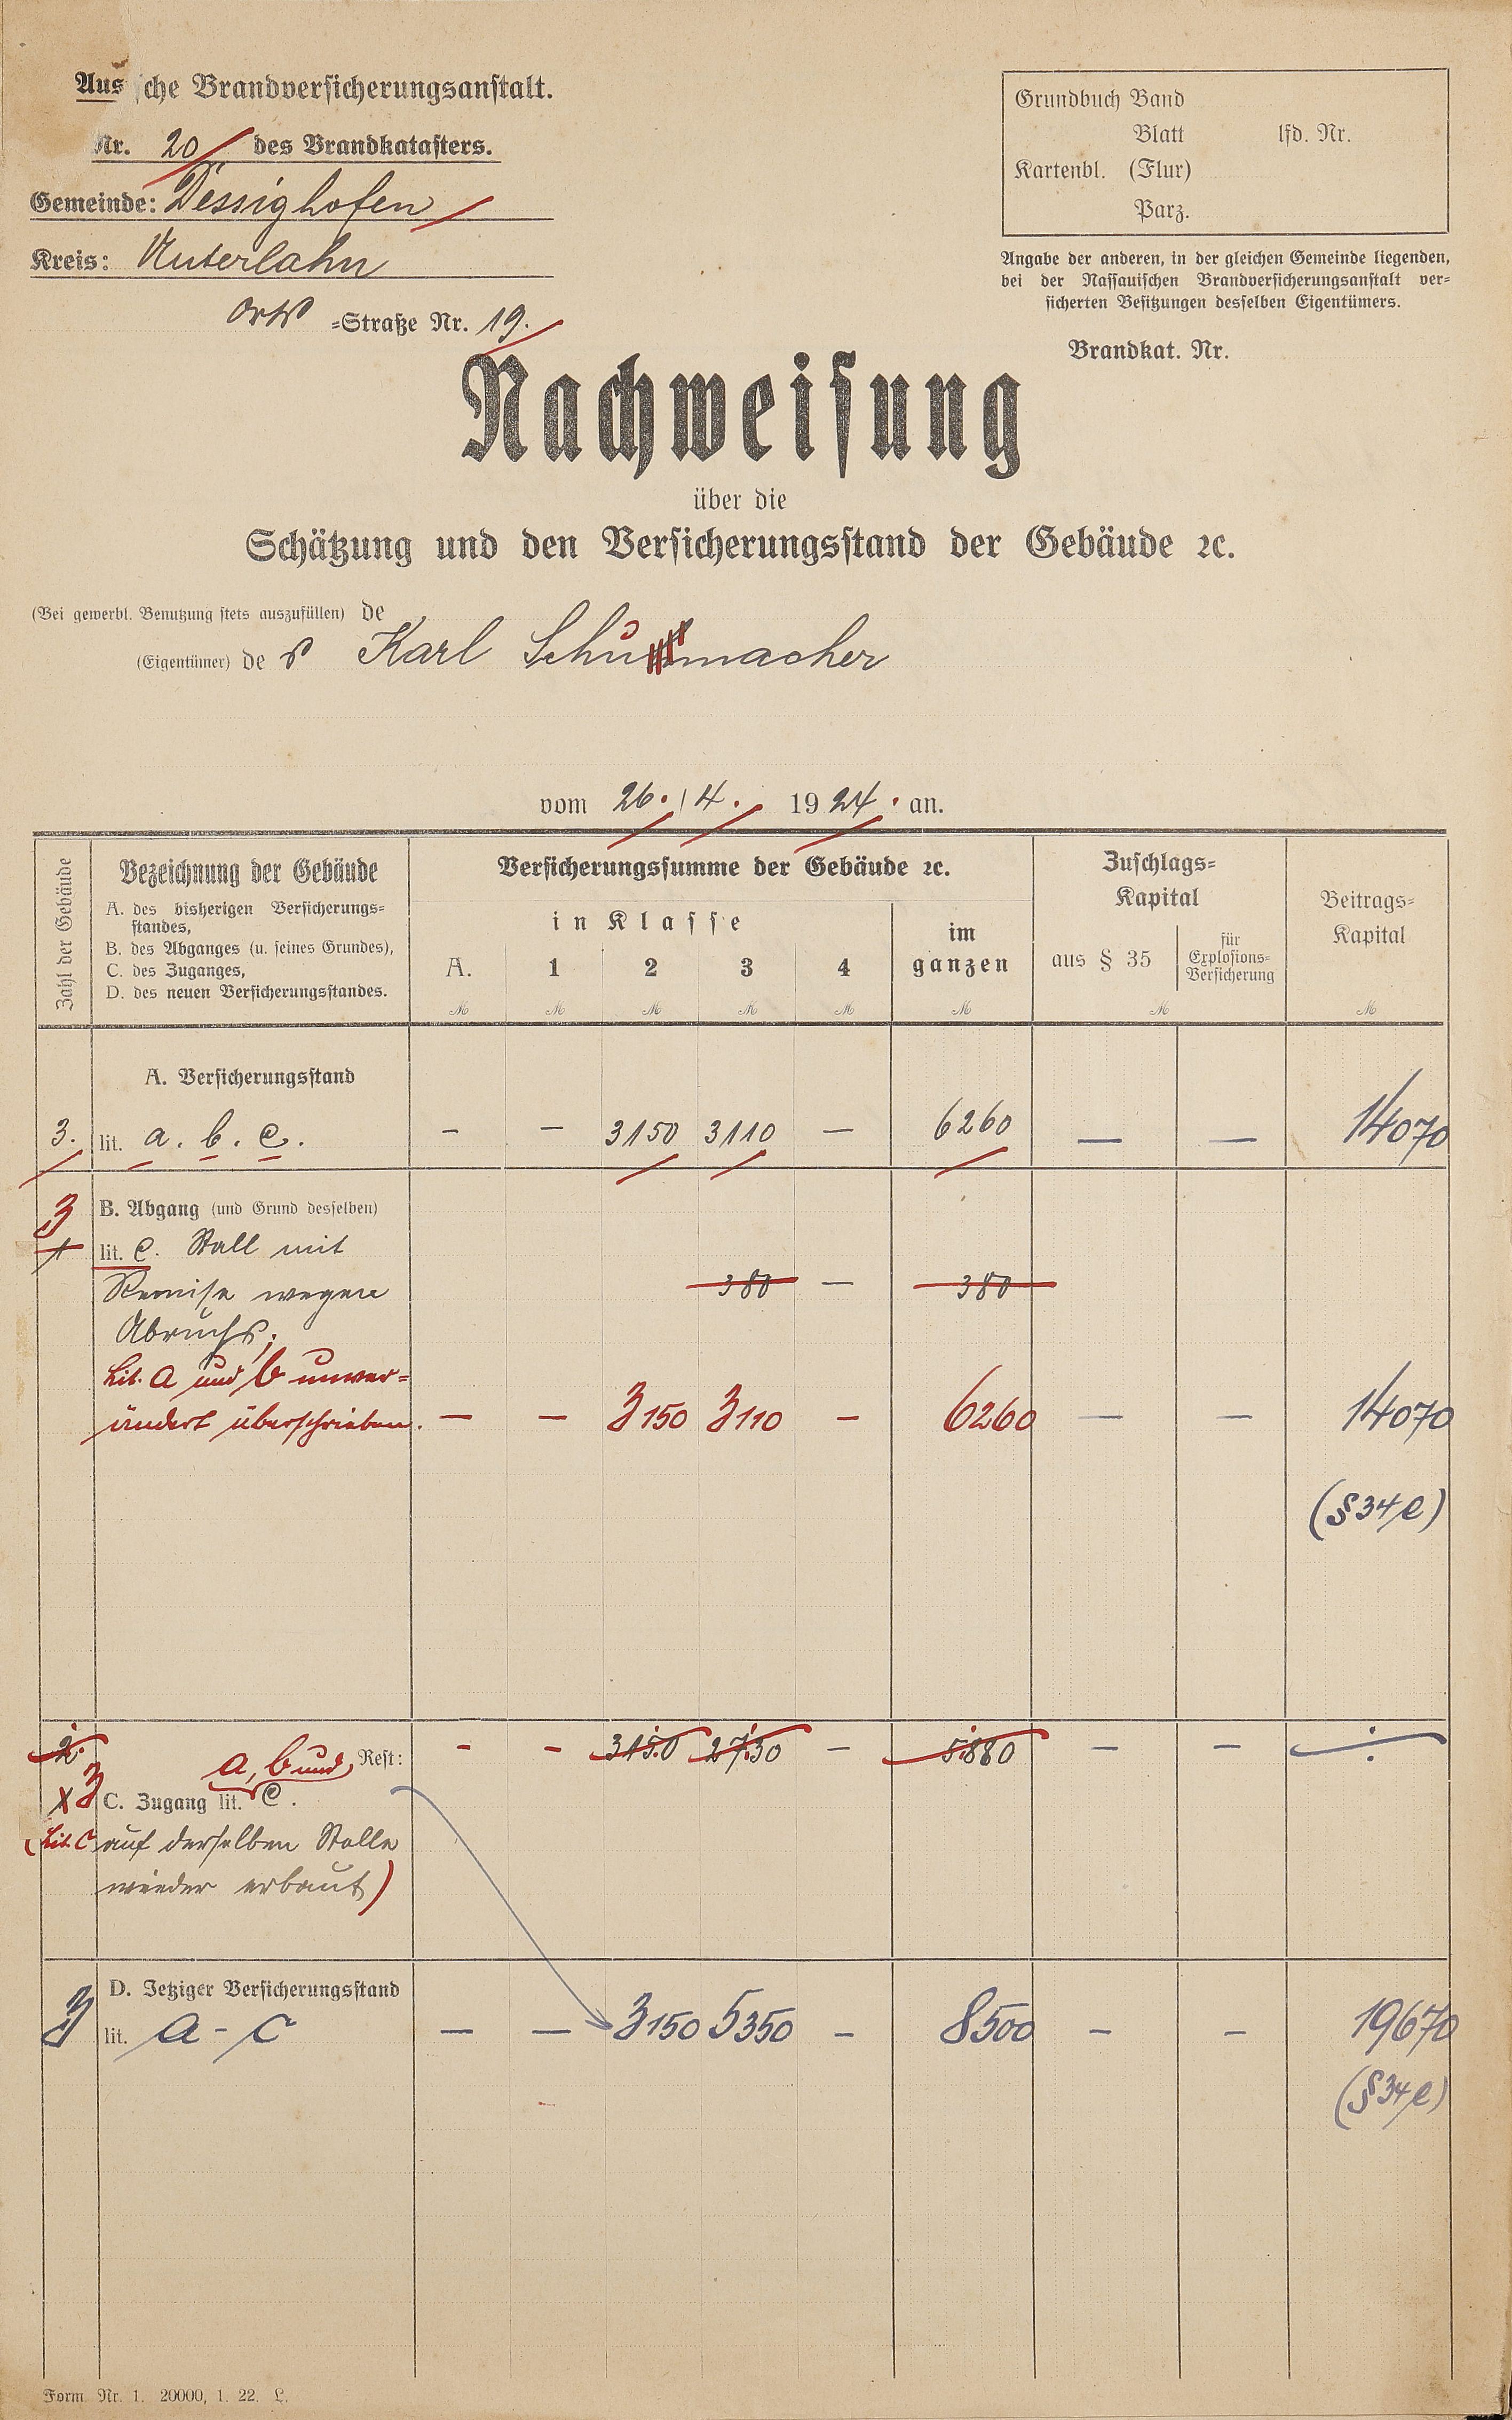 Aus sche Brandversicherungsanstalt.
Nr. 20 des Brandkatasters.
Gemeinde: Dessighofen
Kreis: Unterlahn
Orts =Straße Nr. 19.
Grundbuch Band
Blatt lfd. Nr.
Kartenbl. (Flur)
Parz.
Angabe der anderen, in der gleichen Gemeinde liegenden,
bei der Nassauischen Brandversicherungsanstalt ver=
sicherten Besitzungen desselben Eigentümers.
Brandkat. Nr.
Nachweisung
über die
Schätzung und den Versicherungsstand der Gebäude ꝛc.
(Bei gewerbl. Benutzung stets auszufüllen) de
(Eigentümer) des Karl Schumacher
vom 26./4. 1924. an.
Zahl der Gebäude
Bezeichnung der Gebäude
A. des bisherigen Versicherungs=
standes,
B. des Abganges (u. seines Grundes),
C. des Zuganges,
D. des neuen Versicherungsstandes.
Versicherungssumme der Gebäude ꝛc.
in Klasse
A. 1 2 3 4
im
ganzen
Zuschlags=
Kapital
aus § 35
für
Explosions=
Versicherung
Beitrags=
Kapital
M M M M M M M M
A. Versicherungsstand
3. lit. a. b. c. – – 3150 3110 – 6260 — — 14070
3 B. Abgang (und Grund desselben)
1 lit. c. Stall mit
Remise wegen 380 – 380
Abruchs;
Lit. a und b unver=
ändert überschrieben. – – 3150 3110 – 6260 — – 14070
(§ 34 e)
2. a, b und Rest: – – 3150 2730 – 5880 – – ÷
X 3 C. Zugang lit. c.
(Lit. c auf derselben Stelle
wieder erbaut)
D. Jetziger Versicherungsstand
3 lit. a - c – — 3150 5350 – 8500 – – 19670
(§ 34 e)
Form Nr. 1. 20000, 1. 22. L.